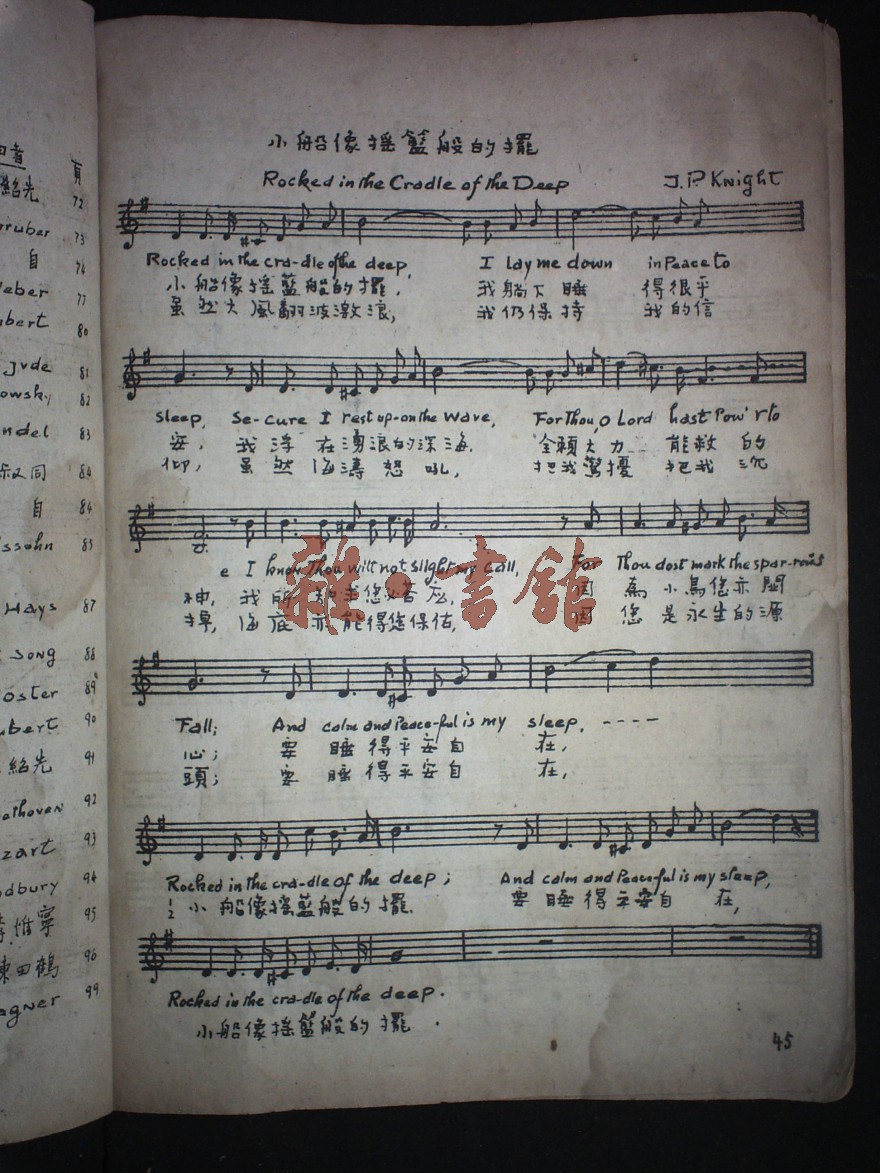 頁
紹先 72
ruber 73
自 76
eber 77
ubert 80
Jude 81
owsky 82
ndel 83
叔同 84
自 84
ssohn 85
Hays 87
Song 88
oster 89
ubert 90
紹先 91
ethoven 92
zart 93
dbury 94
李惟寧 95
陳田鶴 96
agner 99
小船像搖籃般的擺
Rocked in the Cradle of the Deep J.P. Knight
Rocked in the cra-dle of the deep I lay me down in Peace to
小船像搖籃般的擺, 我躺下睡 得很平
虽然大風翻波激浪, 我仍保持 我的信
sleep, Se-cure I rest up-on the wave, For Thou, O Lord hast Pow'r to
安, 我浮在湧浪的深海. 全賴大力 能救的
仰, 虽然海濤怒吼, 把我驚擾 把我沉
e I know Thou wilt not slight my call, For Thou dost mark the spar-row's
神, 我所 求您必答应, 因為小鳥您亦関
掉, 海底亦能得您保佑, 因您是永生的源
Fall; And calm and Peace-ful is my sleep, ----
心; 要睡得平安自在,
頭; 要睡得平安自在,
Rocked in the cra-dle of the deep; And calm and Peace-ful is my sleep,
1 2 小船像搖籃般的擺. 要睡得平安自在,
Rocked in the cra-dle of the deep.
小船像搖籃般的擺.
45
雜·書館